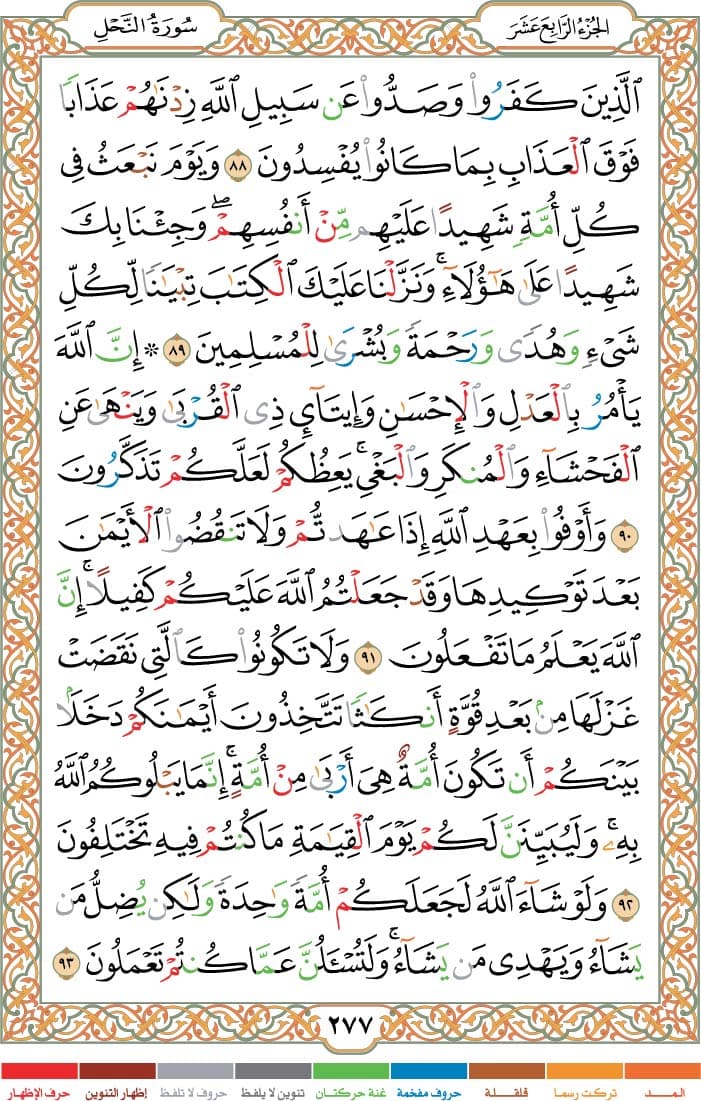 الجُزْءُ الرَّابِعَ عَشَرَ
سُورَةُ النَّحْلِ
ٱلَّذِينَ كَفَرُوا۟ وَصَدُّوا۟ عَن سَبِيلِ ٱللَّهِ زِدْنَٰهُمْ عَذَابًا
فَوْقَ ٱلْعَذَابِ بِمَا كَانُوا۟ يُفْسِدُونَ ٨٨ وَيَوْمَ نَبْعَثُ فِى
كُلِّ أُمَّةٍ شَهِيدًا عَلَيْهِم مِّنْ أَنفُسِهِمْ ۖ وَجِئْنَا بِكَ
شَهِيدًا عَلَىٰ هَٰٓؤُلَآءِ ۚ وَنَزَّلْنَا عَلَيْكَ ٱلْكِتَٰبَ تِبْيَٰنًا لِّكُلِّ
شَىْءٍ وَهُدًى وَرَحْمَةً وَبُشْرَىٰ لِلْمُسْلِمِينَ ٨٩ ۞ إِنَّ ٱللَّهَ
يَأْمُرُ بِٱلْعَدْلِ وَٱلْإِحْسَٰنِ وَإِيتَآئِ ذِى ٱلْقُرْبَىٰ وَيَنْهَىٰ عَنِ
ٱلْفَحْشَآءِ وَٱلْمُنكَرِ وَٱلْبَغْىِ ۚ يَعِظُكُمْ لَعَلَّكُمْ تَذَكَّرُونَ
٩٠ وَأَوْفُوا۟ بِعَهْدِ ٱللَّهِ إِذَا عَٰهَدتُّمْ وَلَا تَنقُضُوا۟ ٱلْأَيْمَٰنَ
بَعْدَ تَوْكِيدِهَا وَقَدْ جَعَلْتُمُ ٱللَّهَ عَلَيْكُمْ كَفِيلًا ۚ إِنَّ
ٱللَّهَ يَعْلَمُ مَا تَفْعَلُونَ ٩١ وَلَا تَكُونُوا۟ كَٱلَّتِى نَقَضَتْ
غَزْلَهَا مِنۢ بَعْدِ قُوَّةٍ أَنكَٰثًا تَتَّخِذُونَ أَيْمَٰنَكُمْ دَخَلًۢا
بَيْنَكُمْ أَن تَكُونَ أُمَّةٌ هِىَ أَرْبَىٰ مِنْ أُمَّةٍ ۚ إِنَّمَا يَبْلُوكُمُ ٱللَّهُ
بِهِۦ ۚ وَلَيُبَيِّنَنَّ لَكُمْ يَوْمَ ٱلْقِيَٰمَةِ مَا كُنتُمْ فِيهِ تَخْتَلِفُونَ
٩٢ وَلَوْ شَآءَ ٱللَّهُ لَجَعَلَكُمْ أُمَّةً وَٰحِدَةً وَلَٰكِن يُضِلُّ مَن
يَشَآءُ وَيَهْدِى مَن يَشَآءُ ۚ وَلَتُسْـَٔلُنَّ عَمَّا كُنتُمْ تَعْمَلُونَ ٩٣
٢٧٧
المــد تركت رسما قلقلة حروف مفخمة غنة حركتان تنوين لا يلفظ حروف لا تلفظ إظهار التنوين حرف الإظهار